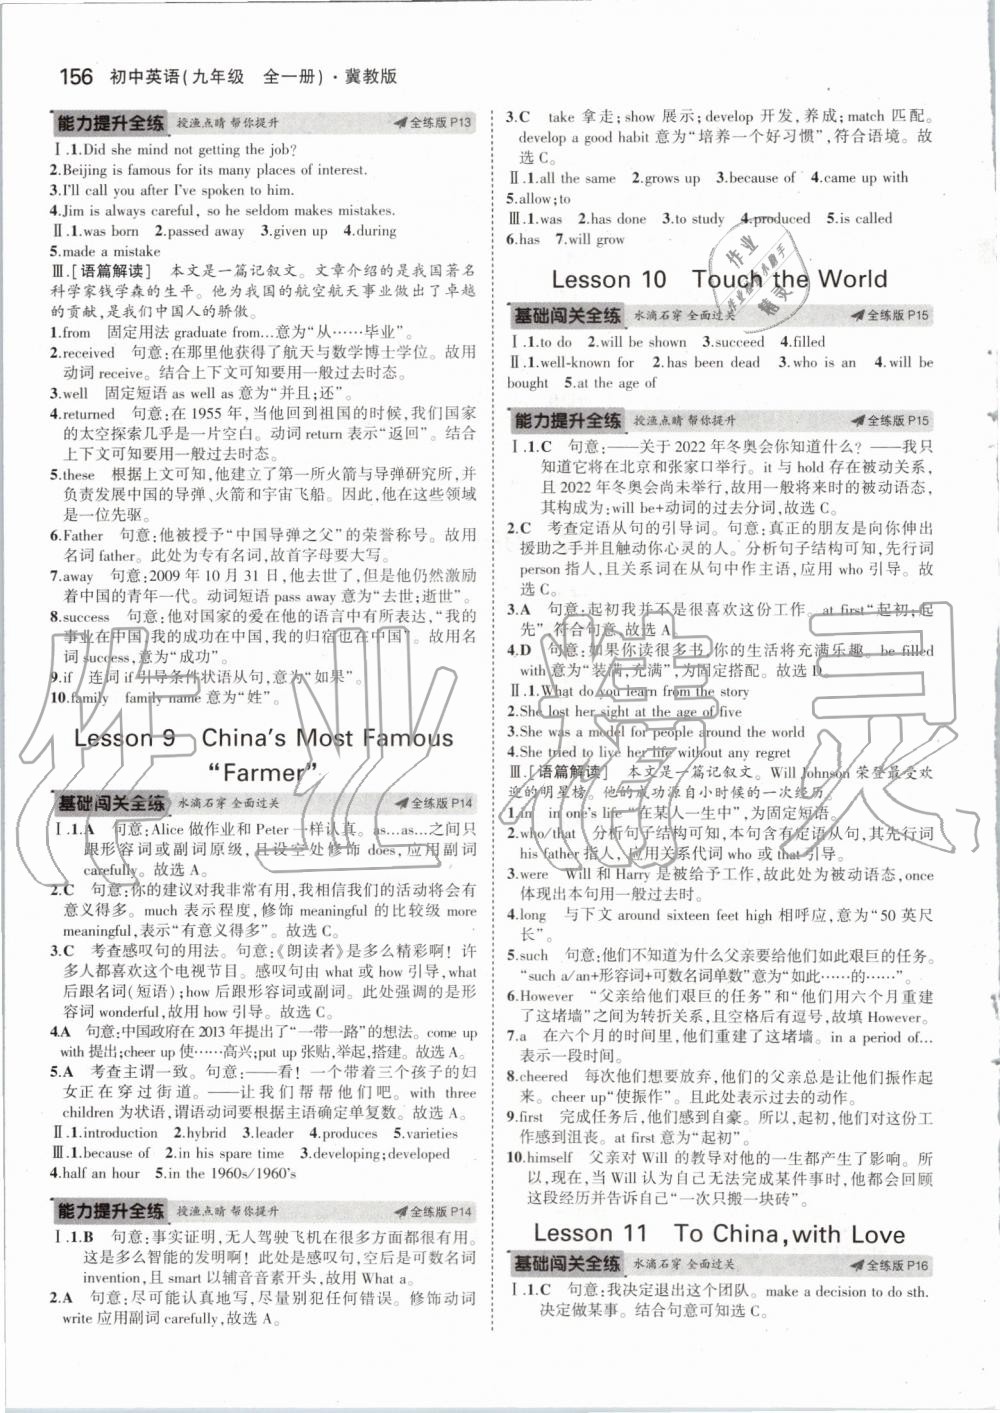 156 初中英语(九年级　全一册)·冀教版
能力提升全练 授渔点睛 帮你提升 全练版 P13
Ⅰ.1.Did she mind not getting the job?
2.Beijing is famous for its many places of interest.
3.I'll call you after I've spoken to him.
4.Jim is always careful, so he seldom makes mistakes.
Ⅱ.1.was born 2.passed away 3.given up 4.during
5.made a mistake
Ⅲ.[语篇解读] 本文是一篇记叙文。文章介绍的是我国著名
科学家钱学森的生平。他为我国的航空航天事业做出了卓越
的贡献,是我们中国人的骄傲。
1.from 固定用法 graduate from…意为“从……毕业”。
2.received 句意:在那里他获得了航天与数学博士学位。故用
动词 receive。结合上下文可知要用一般过去时态。
3.well 固定短语 as well as 意为“并且;还”。
4.returned 句意:在 1955 年,当他回到祖国的时候,我们国家
的太空探索几乎是一片空白。动词 return 表示“返回”。结合
上下文可知要用一般过去时态。
5.these 根据上文可知,他建立了第一所火箭与导弹研究所,并
负责发展中国的导弹、火箭和宇宙飞船。因此,他在这些领域
是一位先驱。
6.Father 句意:他被授予“中国导弹之父”的荣誉称号。故用
名词 father。此处为专有名词,故首字母要大写。
7.away 句意:2009 年 10 月 31 日,他去世了,但是他仍然激励
着中国的青年一代。动词短语 pass away 意为“去世;逝世”。
8.success 句意:他对国家的爱在他的语言中有所表达,“我的
事业在中国,我的成功在中国,我的归宿也在中国”。故用名
词 success,意为“成功”。
9.if 连词 if 引导条件状语从句,意为“如果”。
10.family family name 意为“姓”。
Lesson 9 China's Most Famous
“Farmer”
基础闯关全练 水滴石穿 全面过关 全练版 P14
Ⅰ.1.A 句意:Alice 做作业和 Peter 一样认真。as…as…之间只
跟形容词或副词原级,且设空处修饰 does,应用副词
carefully。故选 A。
2.C 句意:你的建议对我非常有用,我相信我们的活动将会有
意义得多。much 表示程度,修饰 meaningful 的比较级 more
meaningful,表示“有意义得多”。故选 C。
3.C 考查感叹句的用法。句意:《朗读者》是多么精彩啊！许
多人都喜欢这个电视节目。感叹句由 what 或 how 引导,what
后跟名词(短语);how 后跟形容词或副词。此处强调的是形
容词 wonderful,故用 how 引导。故选 C。
4.A 句意:中国政府在 2013 年提出了“一带一路”的想法。come up
with 提出;cheer up 使……高兴;put up 张贴,举起,搭建。故选 A。
5.A 考查主谓一致。句意:——看！一个带着三个孩子的妇
女正在穿过街道。——让我们帮帮他们吧。with three
children 为状语,谓语动词要根据主语确定单复数。故选 A。
Ⅱ.1.introduction 2.hybrid 3.leader 4.produces 5.varieties
Ⅲ.1.because of 2.in his spare time 3.developing;developed
4.half an hour 5.in the 1960s/1960's
能力提升全练 授渔点睛 帮你提升 全练版 P14
Ⅰ.1.B 句意:事实证明,无人驾驶飞机在很多方面都很有用。
这是多么智能的发明啊！此处是感叹句,空后是可数名词
invention,且 smart 以辅音音素开头,故用 What a。
2.A 句意:尽可能认真地写,尽量别犯任何错误。修饰动词
write 应用副词 carefully,故选 A。
3.C take 拿走;show 展示;develop 开发,养成;match 匹配。
develop a good habit 意为“培养一个好习惯”,符合语境。故
选 C。
Ⅱ.1.all the same 2.grows up 3.because of 4.came up with
5.allow;to
Ⅲ.1.was 2.has done 3.to study 4.produced 5.is called
6.has 7.will grow
Lesson 10 Touch the World
基础闯关全练 水滴石穿 全面过关 全练版 P15
Ⅰ.1.to do 2.will be shown 3.succeed 4.filled
Ⅱ.1.well-known for 2.has been dead 3.who is an 4.will be
bought 5.at the age of
能力提升全练 授渔点睛 帮你提升 全练版 P15
Ⅰ.1.C 句意:——关于 2022 年冬奥会你知道什么？——我只
知道它将在北京和张家口举行。it 与 hold 存在被动关系,
且 2022 年冬奥会尚未举行,故用一般将来时的被动语态,
其构成为:will be+动词的过去分词,故选 C。
2.C 考查定语从句的引导词。句意:真正的朋友是向你伸出
援助之手并且触动你心灵的人。分析句子结构可知,先行词
person 指人,且关系词在从句中作主语,应用 who 引导。故
选 C。
3.A 句意:起初我并不是很喜欢这份工作。at first“起初;起
先”,符合句意,故选 A。
4.D 句意:如果你读很多书,你的生活将充满乐趣。be filled
with 意为“装满,充满”,为固定搭配。故选 D。
Ⅱ.1.What do you learn from the story
2.She lost her sight at the age of five
3.She was a model for people around the world
4.She tried to live her life without any regret
Ⅲ.[语篇解读] 本文是一篇记叙文。Will Johnson 荣登最受欢
迎的明星榜。他的成功源自小时候的一次经历。
1.in in one's life“在某人一生中”,为固定短语。
2.who/that 分析句子结构可知,本句含有定语从句,其先行词
his father 指人,应用关系代词 who 或 that 引导。
3.were Will 和 Harry 是被给予工作,故此处为被动语态,once
体现出本句用一般过去时。
4.long 与下文 around sixteen feet high 相呼应,意为“50 英尺
长”。
5.such 句意:他们不知道为什么父亲要给他们如此艰巨的任务。
“such a/an+形容词+可数名词单数”意为“如此……的……”。
6.However “父亲给他们艰巨的任务”和“他们用六个月重建
了这堵墙”之间为转折关系,且空格后有逗号,故填 However。
7.a 在六个月的时间里,他们重建了这堵墙。in a period of…
表示一段时间。
8.cheered 每次他们想要放弃,他们的父亲总是让他们振作起
来。cheer up“使振作”。且此处表示过去的动作。
9.first 完成任务后,他们感到自豪。所以,起初,他们对这份工
作感到沮丧。at first 意为“起初”。
10.himself 父亲对 Will 的教导对他的一生都产生了影响。所
以,现在,当 Will 认为自己无法完成某件事时,他都会回顾
这段经历并告诉自己“一次只搬一块砖”。
Lesson 11 To China, with Love
基础闯关全练 水滴石穿 全面过关 全练版 P16
Ⅰ.1.C 句意:我决定退出这个团队。make a decision to do sth.
决定做某事。结合句意可知选 C。
作业精灵